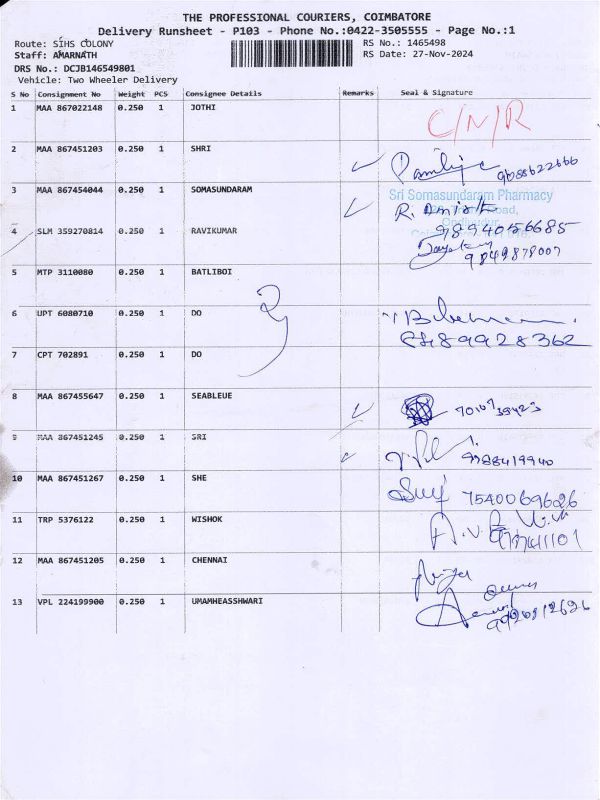 THE PROFESSIONAL COURIERS, COIMBATORE
Delivery Runsheet - P103 - Phone No.:0422-3505555 - Page No.:1
Route: SIHS COLONY
RS No.: 1465498
Staff: AMARNATH
RS Date: 27-Nov-2024
DRS No.: DCJB146549801
Vehicle: Two Wheeler Delivery
S No Consignment No Weight PCS Consignee Details Remarks Seal & Signature
1 MAA 867022148 0.250 1 JOTHI C/N/R
2 MAA 867451203 0.250 1 SHRI
3 MAA 867454044 0.250 1 SOMASUNDARAM Sri Somasundaram Pharmacy
4 SLM 359270814 0.250 1 RAVIKUMAR 9894056685
9849878007
5 MTP 3110080 0.250 1 BATLIBOI
6 UPT 6080710 0.250 1 DO
7 CPT 702891 0.250 1 DO
8 MAA 867455647 0.250 1 SEABLEUE
9 MAA 867451245 0.250 1 SRI 9788419940
10 MAA 867451267 0.250 1 SHE 7540069626
11 TRP 5376122 0.250 1 WISHOK
12 MAA 867451205 0.250 1 CHENNAI
13 VPL 224199900 0.250 1 UMAMHEASSHWARI